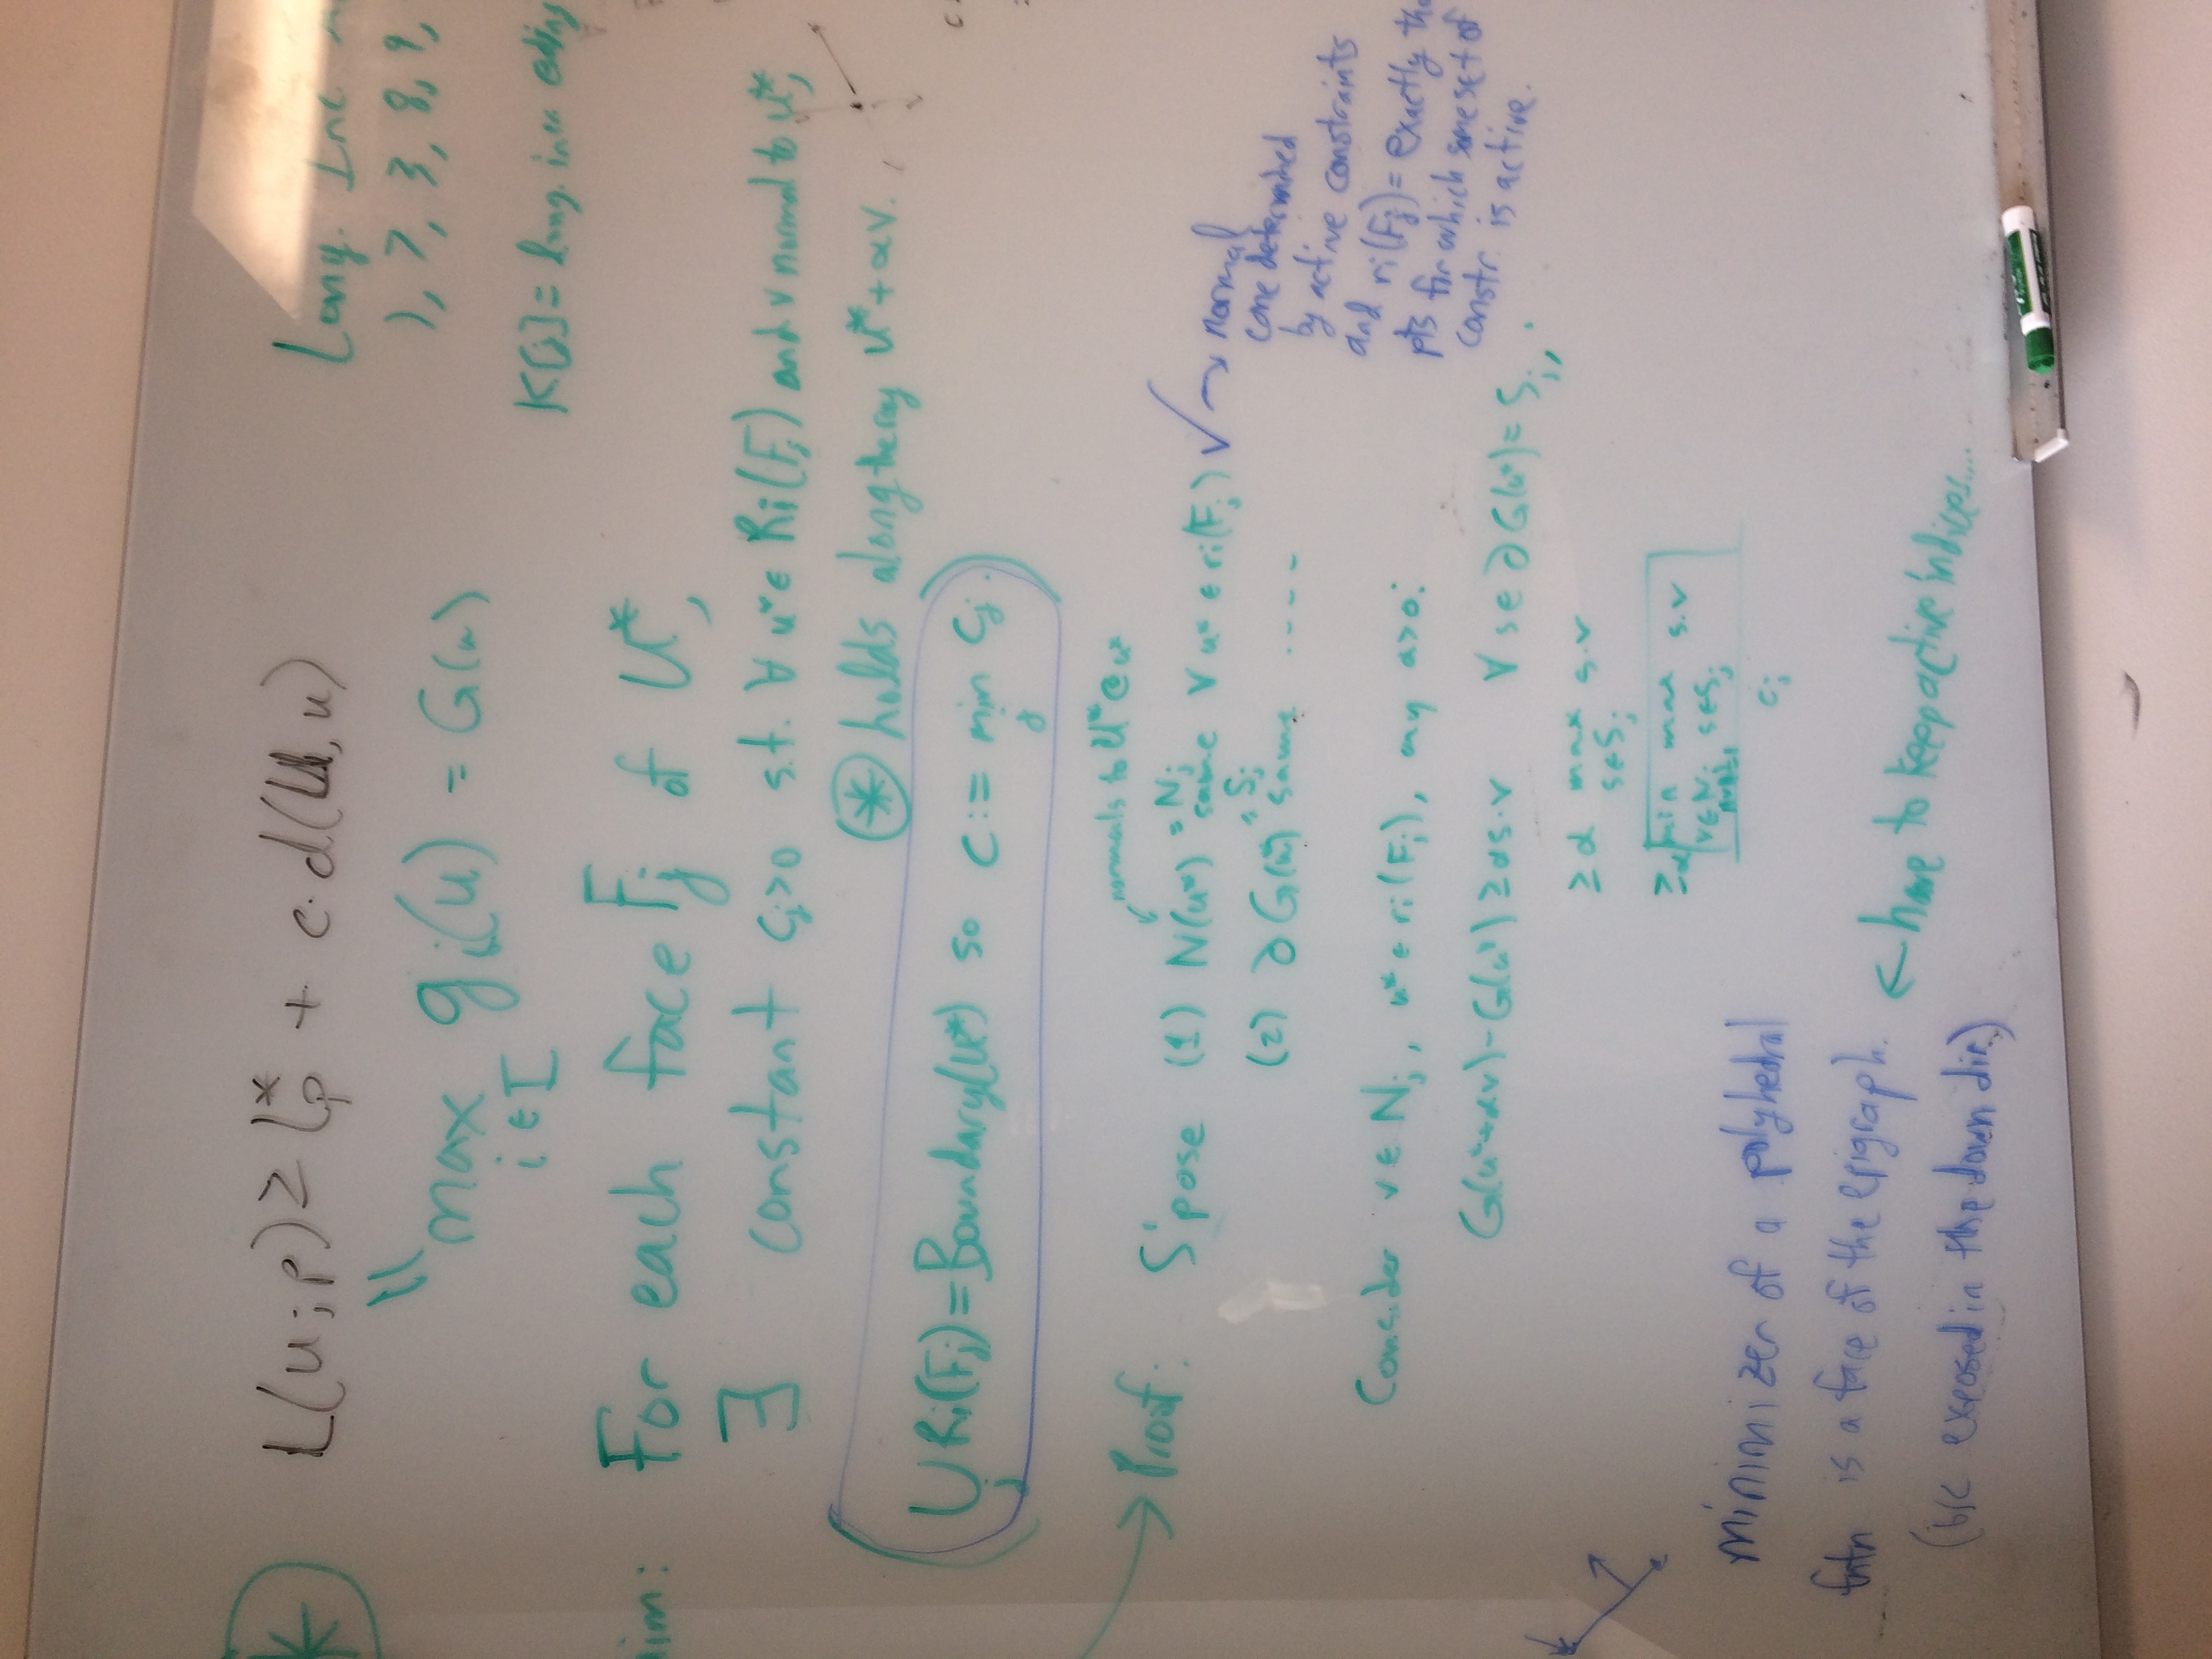 *
L(u;p) ≥ l*_p + c·d(U,u)
Long. Inc.
), 7, 3, 8, 9,
max g_i(u) = G(u)
i∈I
K[j] = long. incr. ending
aim: For each face F_j of U*,
∃ constant c_j>0 s.t. ∀ u*∈ Ri(F_j) and v normal to u*,
(*) holds along the ray u*+αv.
(∪_j Ri(F_j) = Boundary(U*) so c := min_j c_j.)
normals to U* @ u*
→ Proof: S'pose (1) N(u*) =N_j same ∀ u* ∈ ri(F_j) ✓ → normal
cone determined
by active constraints
and ri(F_j) = exactly the
pts for which some set of
constr. is active.
(2) ∂G(u*) =S_j same ....
Consider v∈N_j, u*∈ri(F_j), any α>0:
G(u*+αv)-G(u*) ≥ αs·v ∀ s∈∂G(u*)=S_j,
≥ α max_{s∈S_j} s·v
≥ α min_{v∈N_j} max_{s∈S_j} s·v
c_j
minimizer of a polyhedral
fntn is a face of the epigraph.
(b/c exposed in the down dir.)
← have to keep active indices....